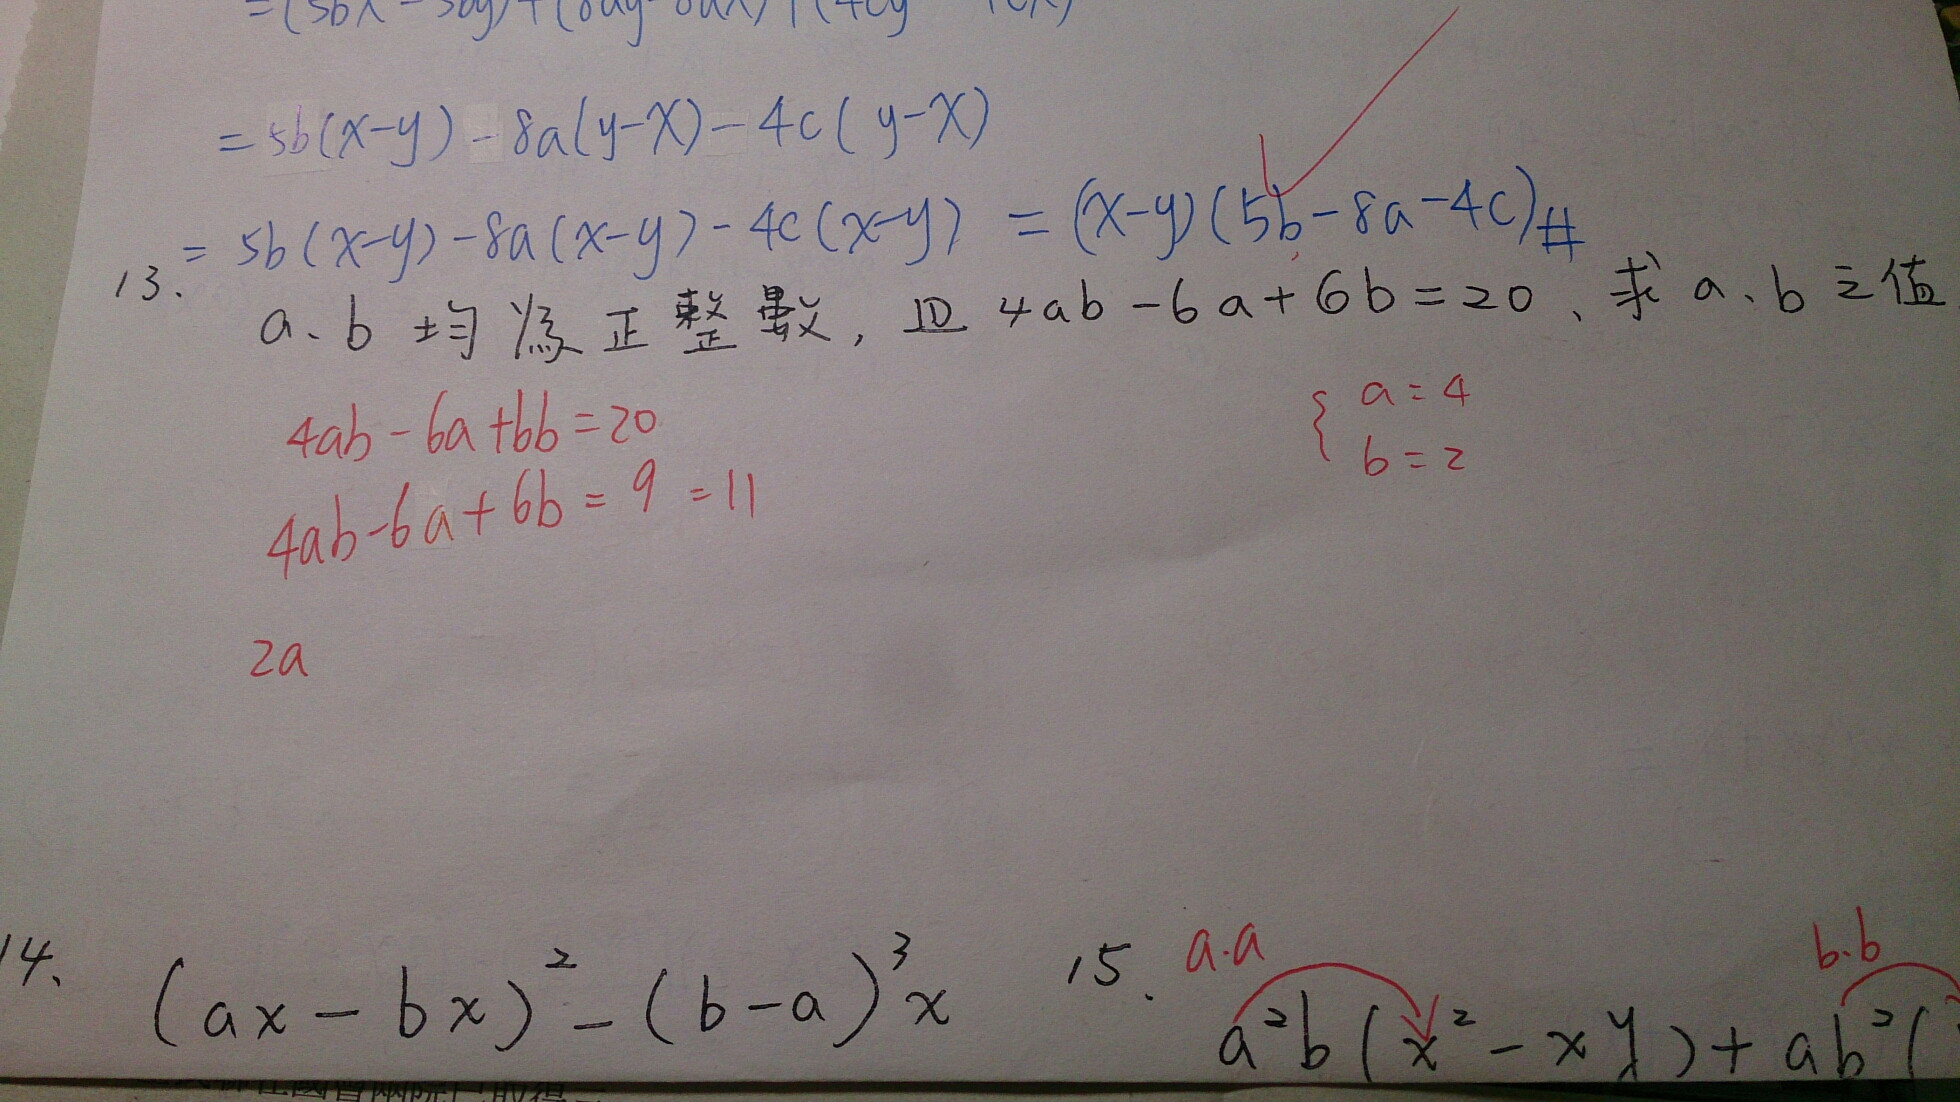 =5b(x-y)-8a(y-x)-4c(y-x)
=5b(x-y)-8a(x-y)-4c(x-y) =(x-y)(5b-8a-4c)#
13.
a、b 均為正整數，且 4ab-6a+6b=20、求 a、b之值
4ab-6a+6b=20
{a=4
b=2
4ab-6a+6b=9=11
2a
14. (ax-bx)²-(b-a)³x
15. a²b(x²-xy)+ab²(
a.a
b.b